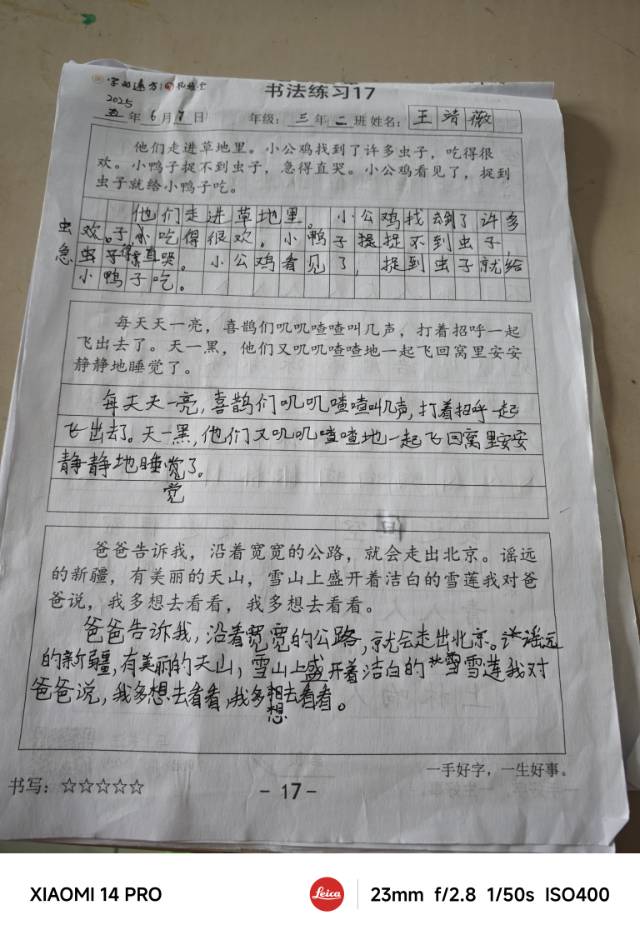 书法练习17
2025
五年6月7日 年级：三年二班 姓名：王靖薇
他们走进草地里。小公鸡找到了许多虫子，吃得很
欢。小鸭子捉不到虫子，急得直哭。小公鸡看见了，捉到
虫子就给小鸭子吃。
他们走进草地里。小公鸡找到了许多
虫
欢。子 吃得很欢。小鸭子捉捉不到虫子，
急
虫子得直哭。小公鸡看见了，捉到虫子就给
小鸭子吃。
每天天一亮，喜鹊们叽叽喳喳叫几声，打着招呼一起
飞出去了。天一黑，他们又叽叽喳喳地一起飞回窝里安安
静静地睡觉了。
每天天一亮，喜鹊们叽叽喳喳叫几声，打着招呼一起
飞出去了。天一黑，他们又叽叽喳喳地一起飞回窝里安安
静静地睡觉了。
觉
爸爸告诉我，沿着宽宽的公路，就会走出北京。遥远
的新疆，有美丽的天山，雪山上盛开着洁白的雪莲我对爸
爸说，我多想去看看，我多想去看看。
爸爸告诉我，沿着宽宽的公路，就会走出北京。遥远
的新疆，有美丽的天山，雪山上盛开着洁白的雪雪莲我对
爸爸说，我多想去看看，我多想去看看。
想
一手好字，一生好事。
书写：☆☆☆☆☆
-17-
XIAOMI 14 PRO
Leica
23mm f/2.8 1/50s ISO400